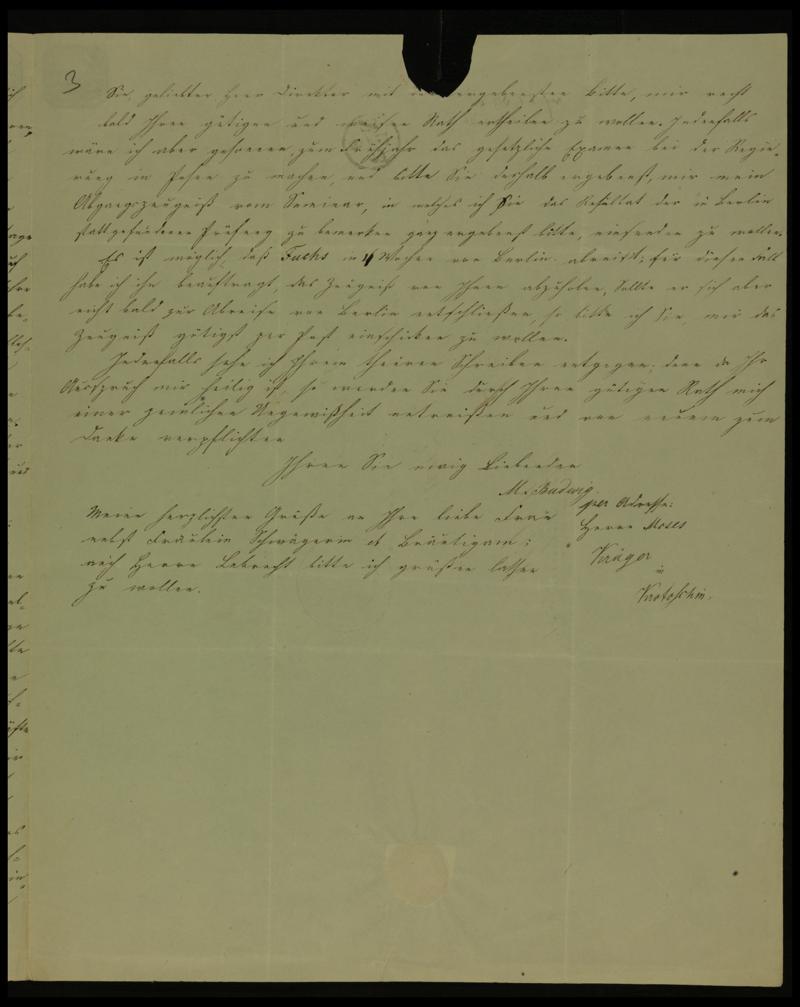 3
Sie, geliebter Herr Direktor mit ergebensten Bitte, mir recht
bald Ihren gütigen und weisen Rath ertheilen zu wollen. Jedenfalls
wäre ich aber gesonnen, zum Frühjahr das gesetzliche Examen bei der Regie-
rung in Posen zu machen, und bitte Sie deshalb ergebenst, mir mein
Abgangszeugniß vom Seminar, in welches ich Sie das Resultat der in Berlin
stattgefundenen Prüfung zu bemerken ganz ergebenst bitte, einsenden zu wollen.
Es ist möglich, daß Fuchs in 4 Wochen von Berlin abreist; für diesen Fall
habe ich ihn beauftragt, das Zeugniß von Ihnen abzuholen, sollte er sich aber
nicht bald zur Abreise von Berlin entschließen, so bitte ich Sie, mir das
Zeugniß gütigst per Post einschicken zu wollen.
Jedenfalls sehe ich Ihrem theuren Schreiben entgegen; denn da Ihr
Ausspruch mir heilig ist, so werden Sie durch Ihren gütigen Rath mich
einer peinlichen Ungewißheit entreißen und von neuem zum
Danke verpflichten
Ihren Sie ewig liebenden
M. Badwig.
Meine herzlichsten Grüße an Ihre liebe Frau
nebst Fräulein Schwägerin & Bräutigam;
auch Herrn Lebrecht bitte ich grüßen lassen
zu wollen.
per Adresse:
Herrn Moses
Krüger
in
Krotoschin.